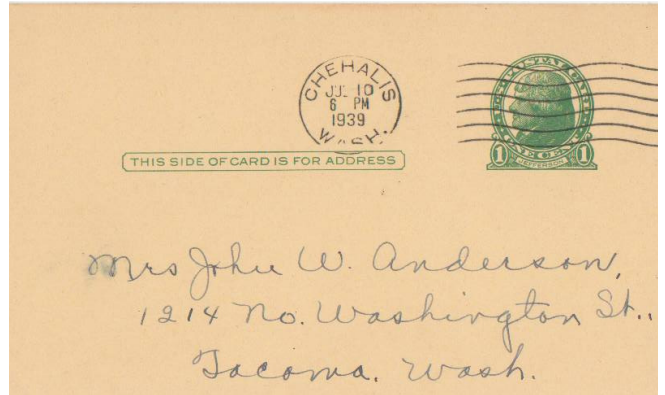 CHEHALIS
JUL 10
6 PM
1939
WASH.
U.S. POSTAL CARD
1 ONE CENT 1
JEFFERSON
THIS SIDE OF CARD IS FOR ADDRESS
Mrs John W. Anderson,
1214 No. Washington St.,
Tacoma, Wash.